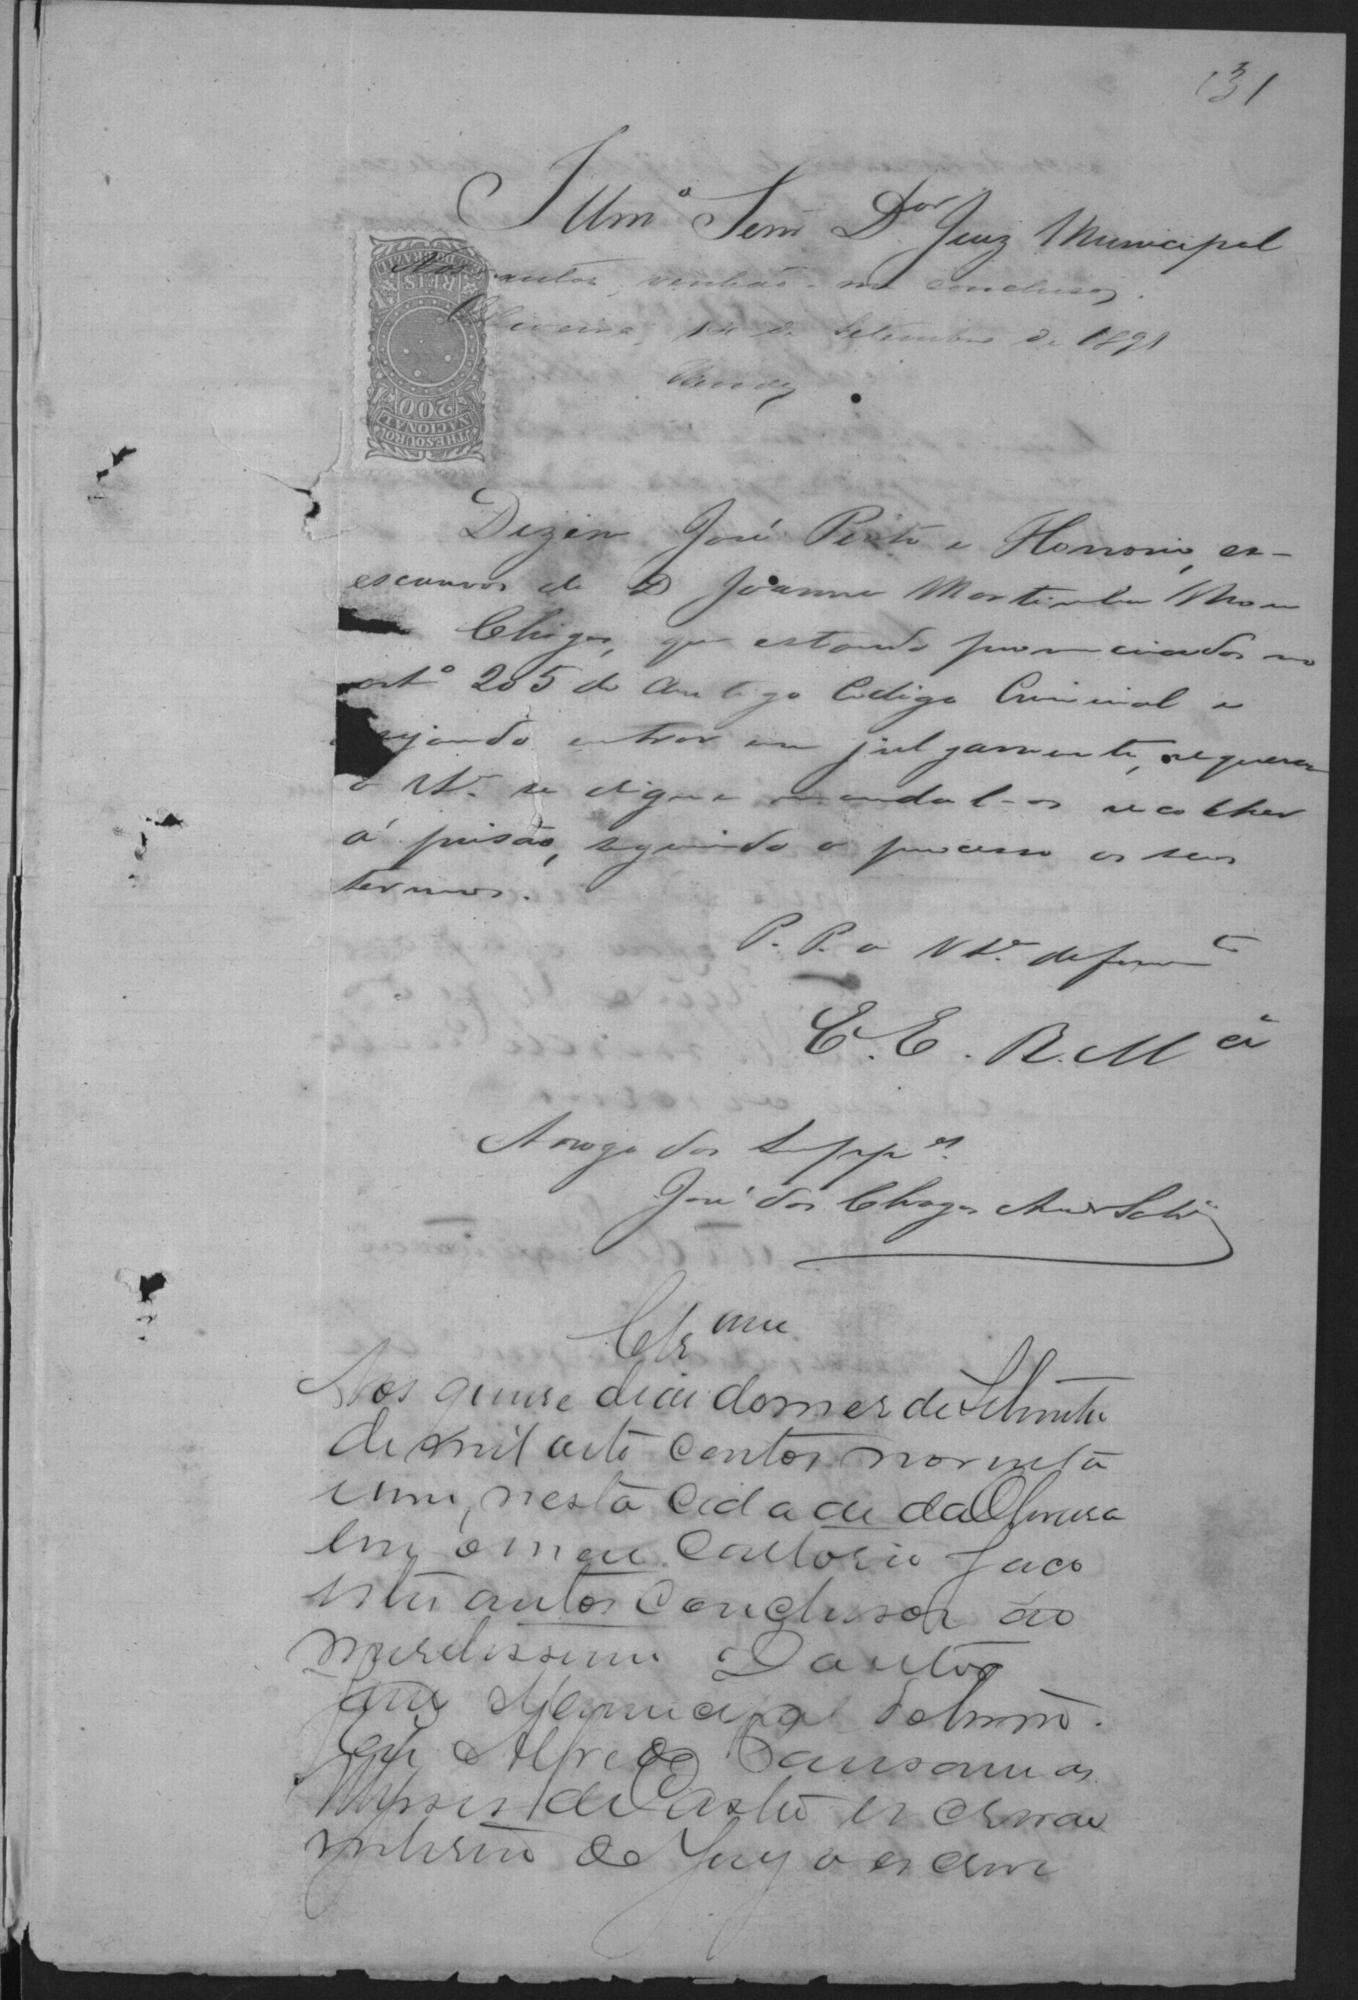 131
Illm.º Senr. Dor Juiz Municipal
Aos autos, venhão-me conclusos.
Oliveira, 14 de Setembro de 1891
THESOURO NACIONAL
200
REIS
Dizem José Pinto e Honorio, es-
escravos de D Joanna Martinha
Chagas, que estando pronunciados no
artº 205 do antigo Codigo Criminal e
sejando entrar em julgamento, requerem
a Vª. se digne mandal-os recolher
á prisão, seguindo o processo os seus
termos.
P. P. a V Sª. deferimtº
E. E. R. Mcê
A rogo dos Suppes.
José das Chagas Andr
Clsam
Aos quinse dias do mes de Setembro
de mil oito centos noventa
e um, nesta Cidade da Oliveira
em o meu Cartorio faço
estes autos Conclusos ao
meretissimo Doutor
Juis Municipal do termo.
Eu Alfredo
de Castro escrivão
interino do Jury o escrevi